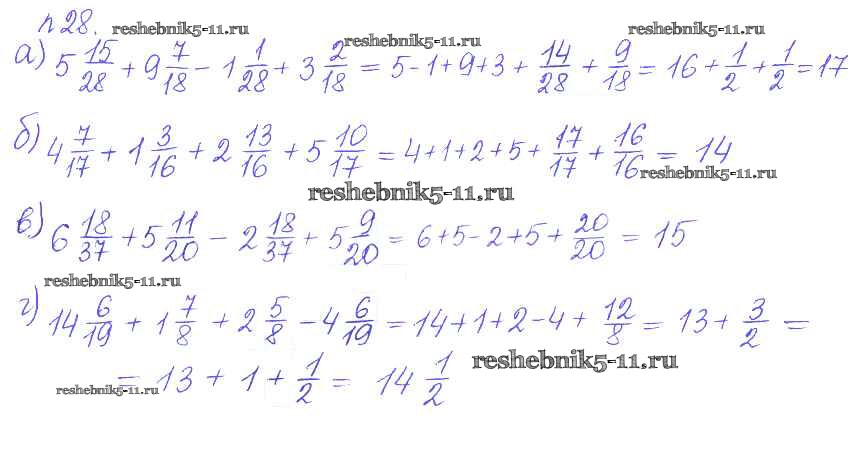 n 28. reshebnik5-11.ru reshebnik5-11.ru reshebnik5-11.ru
а) 5 15/28 + 9 7/18 - 1 1/28 + 3 2/18 = 5-1+9+3 + 14/28 + 9/18 = 16 + 1/2 + 1/2 = 17
б) 4 7/17 + 1 3/16 + 2 13/16 + 5 10/17 = 4+1+2+5+ 17/17 + 16/16 = 14
reshebnik5-11.ru
reshebnik5-11.ru
в) 6 18/37 + 5 11/20 - 2 18/37 + 5 9/20 = 6+5-2+5+ 20/20 = 15
reshebnik5-11.ru
г) 14 6/19 + 1 7/8 + 2 5/8 - 4 6/19 = 14+1+2-4+ 12/8 = 13+ 3/2 =
= 13 + 1 + 1/2 = 14 1/2
reshebnik5-11.ru
reshebnik5-11.ru